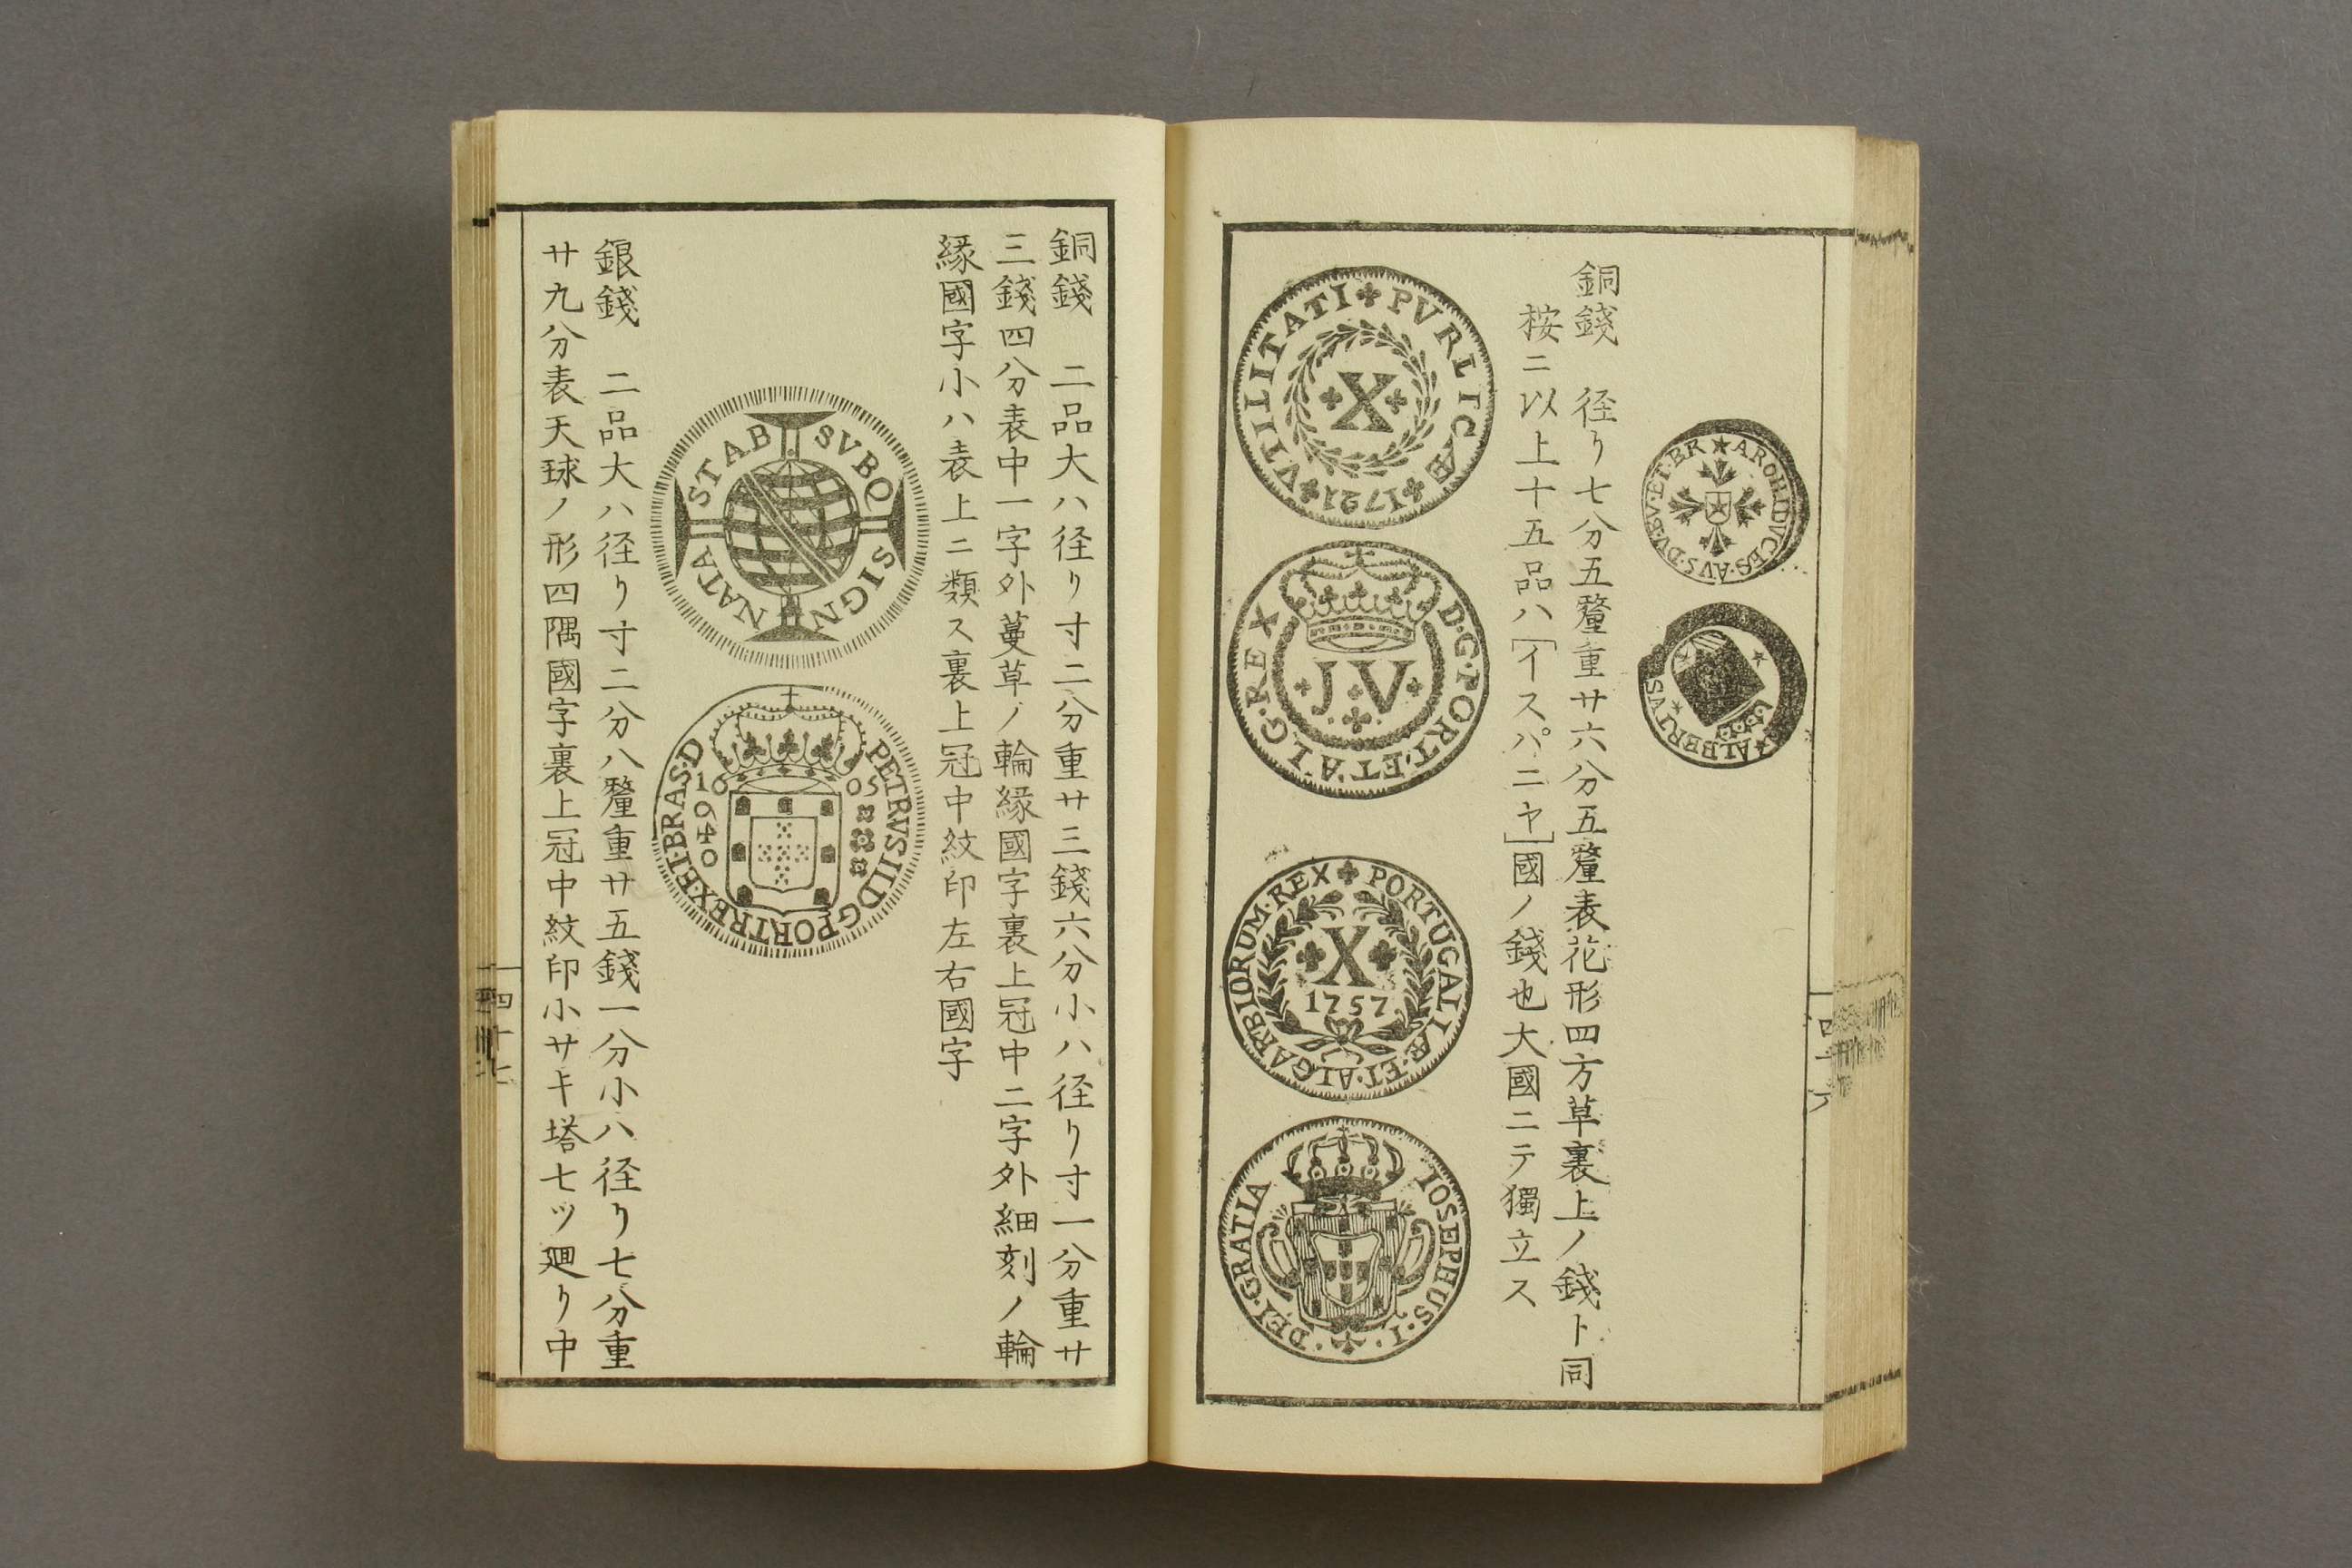 ARCHIDVCES·AVS·DVX·BV·ET·BR
ALBERTVS
銅錢 径リ七分五釐重サ六分五釐表花形四方草裏上ノ錢ト同
桉ニ以上十五品ハ[イスパニヤ]國ノ錢也大國ニテ獨立ス
VTILITATI PVBLICÆ 1721
X
D·G·PORT·ET·ALG·REX
J V
PORTUGALIÆ·ET·ALGARBIORUM·REX
X
1757
IOSEPHUS·I·DEI·GRATIA
四十六
銅錢 二品大ハ径リ寸二分重サ三錢六分小ハ径リ寸一分重サ
三錢四分表中一字外蔓草ノ輪縁國字裏上冠中二字外細刻ノ輪
縁國字小ハ表上ニ類ス裏上冠中紋印左右國字
SVBQ SIGN NATA STAB
PETRVSIIDGPORTREX·ET·BRAS·D
16 05
640
銀錢 二品大ハ径リ寸二分八釐重サ五錢一分小ハ径リ七分重
サ九分表天球ノ形四隅國字裏上冠中紋印小サキ塔七ツ廻リ中
四十七